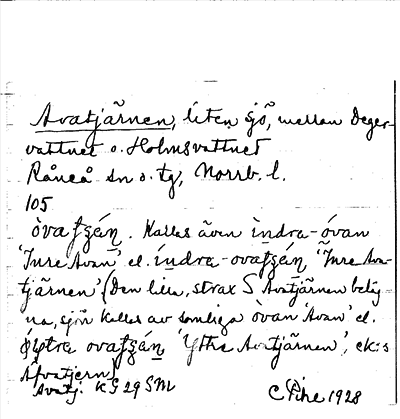 Avatjärnen, liten sjö, mellan Deger-
vattnet o. Holmsvattnet
Råneå sn o. tg, Norrb. l.
105
òvaʈʂɛ́n. Kallas även ìndra-óvan
'Inre Avan' el. índra-ovaʈʂɛ́n, 'Inre Ava-
tjärnen' (Den lilla, strax S Avatjärnen belig
na, sjön kallas av somliga òvan 'Avan' el.
ova 'Yttre Avatjärnen', ek:s
Afvatjern)
Avatj. KG 29 SM
C Pihl 1928